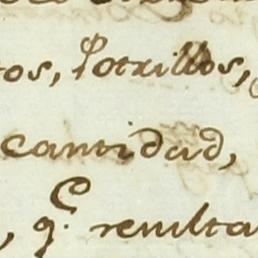 tos, Potrillos,
cantidad,
, q.e resulta